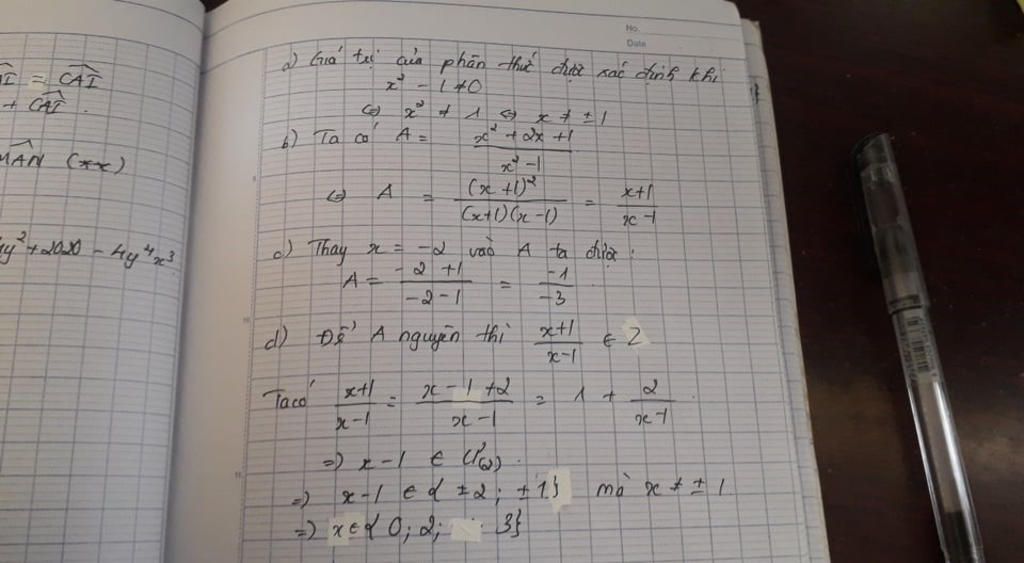 No.
Date
ÂI = CÂI
+ CÂI.
MÂN (**)
y² + 2020 - 4y⁴x³
a) Giá trị của phân thức được xác định khi
x² - 1 ≠ 0
⇔ x² ≠ 1 ⇔ x ≠ ± 1
b) Ta có A = (x² + 2x + 1)/(x² - 1)
⇔ A = (x + 1)²/((x+1)(x - 1)) = (x+1)/(x-1)
c) Thay x = -2 vào A ta được:
A = (-2 + 1)/(-2 - 1) = (-1)/(-3)
d) Để A nguyên thì (x+1)/(x-1) ∈ Z
Ta có (x+1)/(x-1) = (x - 1 + 2)/(x - 1) = 1 + 2/(x-1)
⇒ x - 1 ∈ Ư(2).
⇒ x - 1 ∈ { ± 2 ; ± 1 } mà x ≠ ± 1
⇒ x ∈ { 0 ; 2 ; 3 }